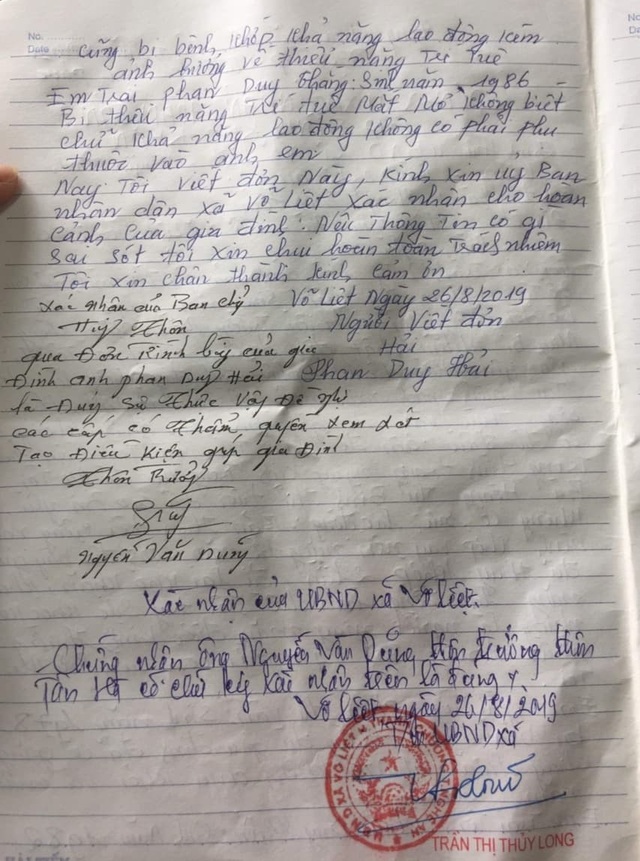 No.
Date
cũng bị bệnh khớp khả năng lao động kém
ảnh hưởng về thiểu năng Trí Tuệ
Em Trai phan Duy Thắng. Sinh năm 1986
Bị thiểu năng Trí tuệ Mất Mở không biết
chữ khả năng lao động không có phải phụ
thuộc vào anh em
Nay Tôi viết đơn Này, kính xin uỷ Ban
nhân dân xã Võ Liệt xác nhận cho hoàn
cảnh của gia đình. Nếu Thông Tin có gì
sai sót tôi xin chịu hoàn toàn Trách nhiệm
Tôi xin chân thành kính cảm ơn
Võ Liệt Ngày 26/8/2019
Người Viết đơn
Hải
Phan Duy Hải
Xác nhận của Ban chỉ
Huy Thôn
qua Đơn Trình bày của gia
Đình anh phan Duy Hải
là Đúng Sự Thực Vậy Đề nghị
các cấp có Thẩm quyền xem xét
Tạo Điều Kiện giúp gia Đình
Thôn Trưởng
Nguyễn Văn Dũng
Xác nhận của UBND xã Võ Liệt.
Chứng nhận ông Nguyễn Văn Dũng thôn trưởng thôn
Tân Hà có chữ ký xác nhận trên là đúng
Võ Liệt, ngày 26/8/2019
T/M UBND xã
U.B.N.D XÃ VÕ LIỆT H. THANH CHƯƠNG T. NGHỆ AN
TRẦN THỊ THỦY LONG